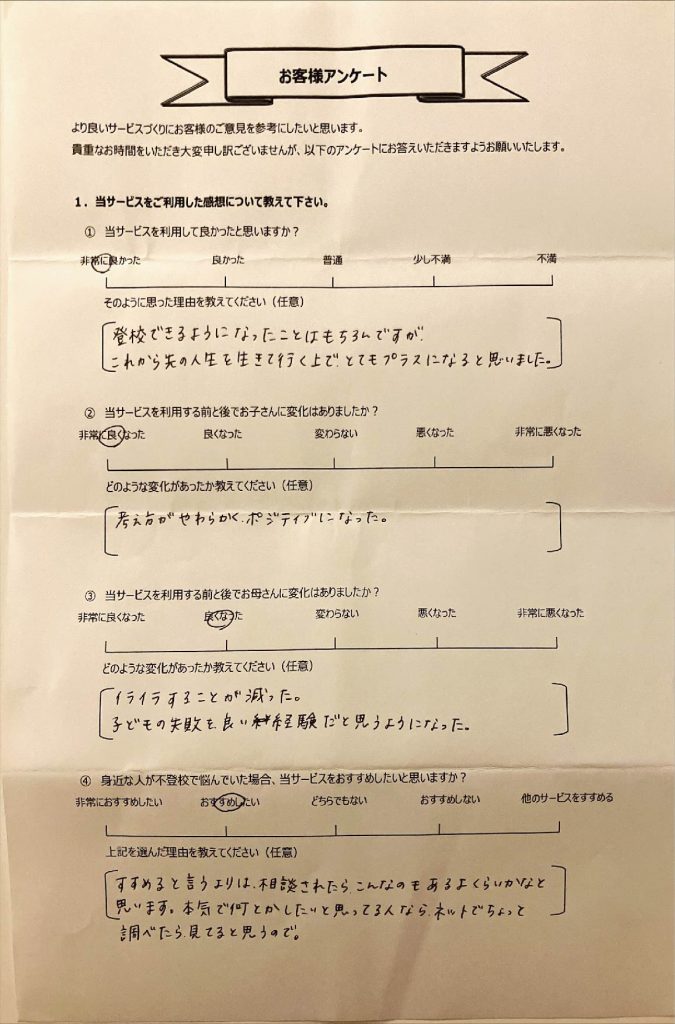 お客様アンケート
より良いサービスづくりにお客様のご意見を参考にしたいと思います。
貴重なお時間をいただき大変申し訳ございませんが、以下のアンケートにお答えいただきますようお願いいたします。
1．当サービスをご利用した感想について教えて下さい。
① 当サービスを利用して良かったと思いますか？
非常に良かった 良かった 普通 少し不満 不満
そのように思った理由を教えてください（任意）
登校できるようになったことはもちろんですが、
これから先の人生を生きて行く上で、とてもプラスになると思いました。
② 当サービスを利用する前と後でお子さんに変化はありましたか？
非常に良くなった 良くなった 変わらない 悪くなった 非常に悪くなった
どのような変化があったか教えてください（任意）
考え方がやわらかく、ポジティブになった。
③ 当サービスを利用する前と後でお母さんに変化はありましたか？
非常に良くなった 良くなった 変わらない 悪くなった 非常に悪くなった
どのような変化があったか教えてください（任意）
イライラすることが減った。
子どもの失敗を、良い経験だと思うようになった。
④ 身近な人が不登校で悩んでいた場合、当サービスをおすすめしたいと思いますか？
非常におすすめしたい おすすめしたい どちらでもない おすすめしない 他のサービスをすすめる
上記を選んだ理由を教えてください（任意）
すすめると言うよりは、相談されたら、こんなのもあるよくらいかなと
思います。本気で何とかしたいと思ってる人なら、ネットでちょっと
調べたら、見てると思うので。